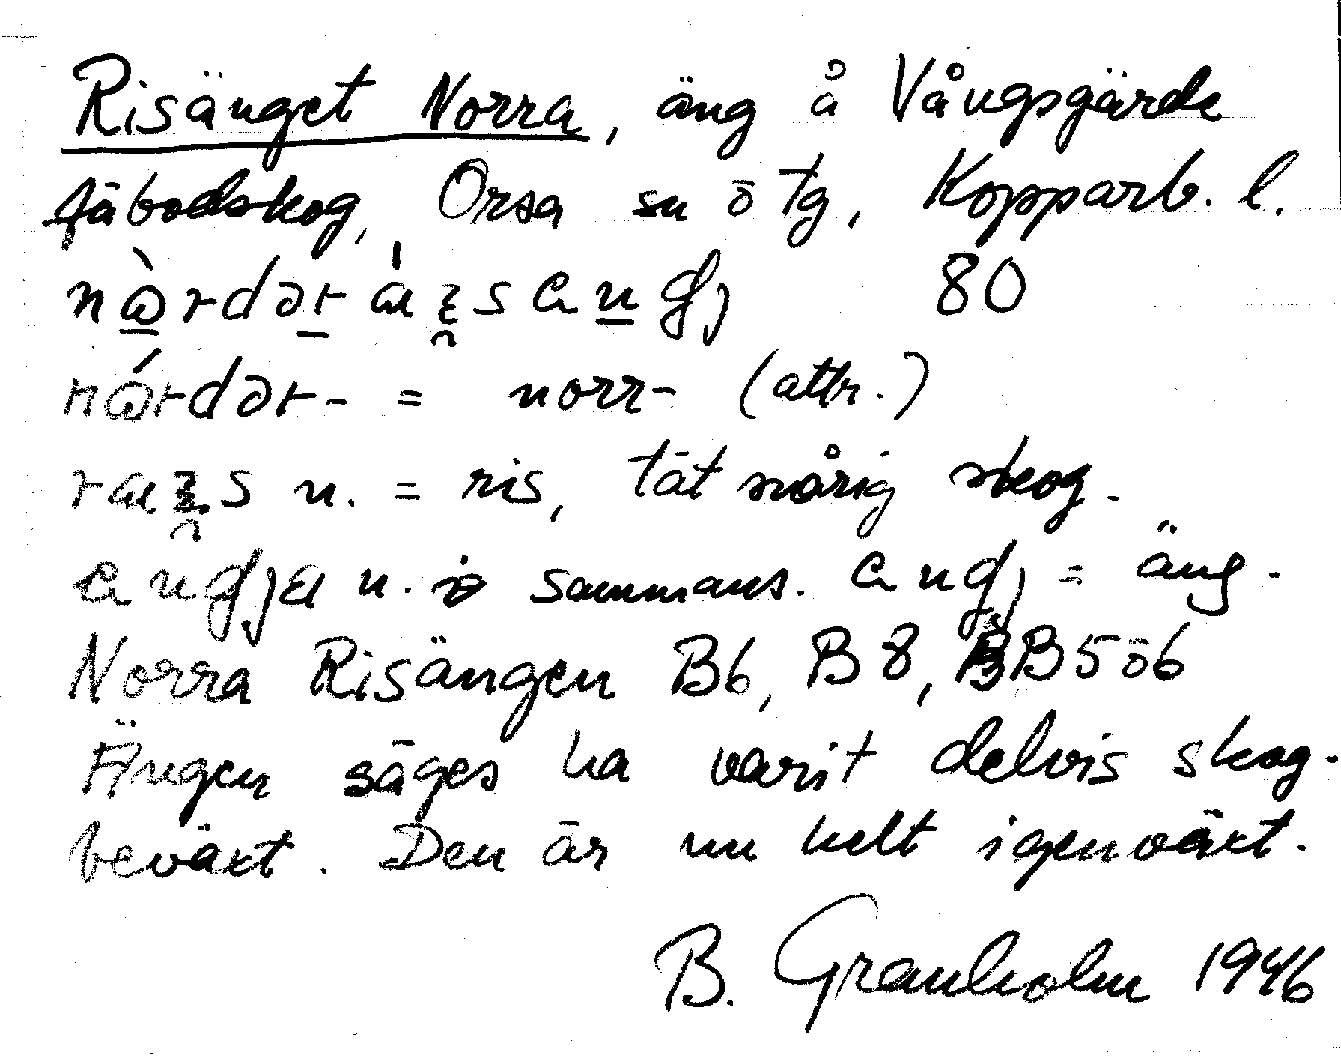 Risänget Norra, äng å Vångsgärde
fäbodskog, Orsa sn ö tg, Kopparb. l.
80
= norr- (attr.)
n. = ris, tät snårig skog.
n. i sammans. = äng.
Norra Risängen B6, B8, BB5ö6
Ängen säges ha varit delvis skog-
beväxt. Den är nu helt igenväxt.
B. Granholm 1946